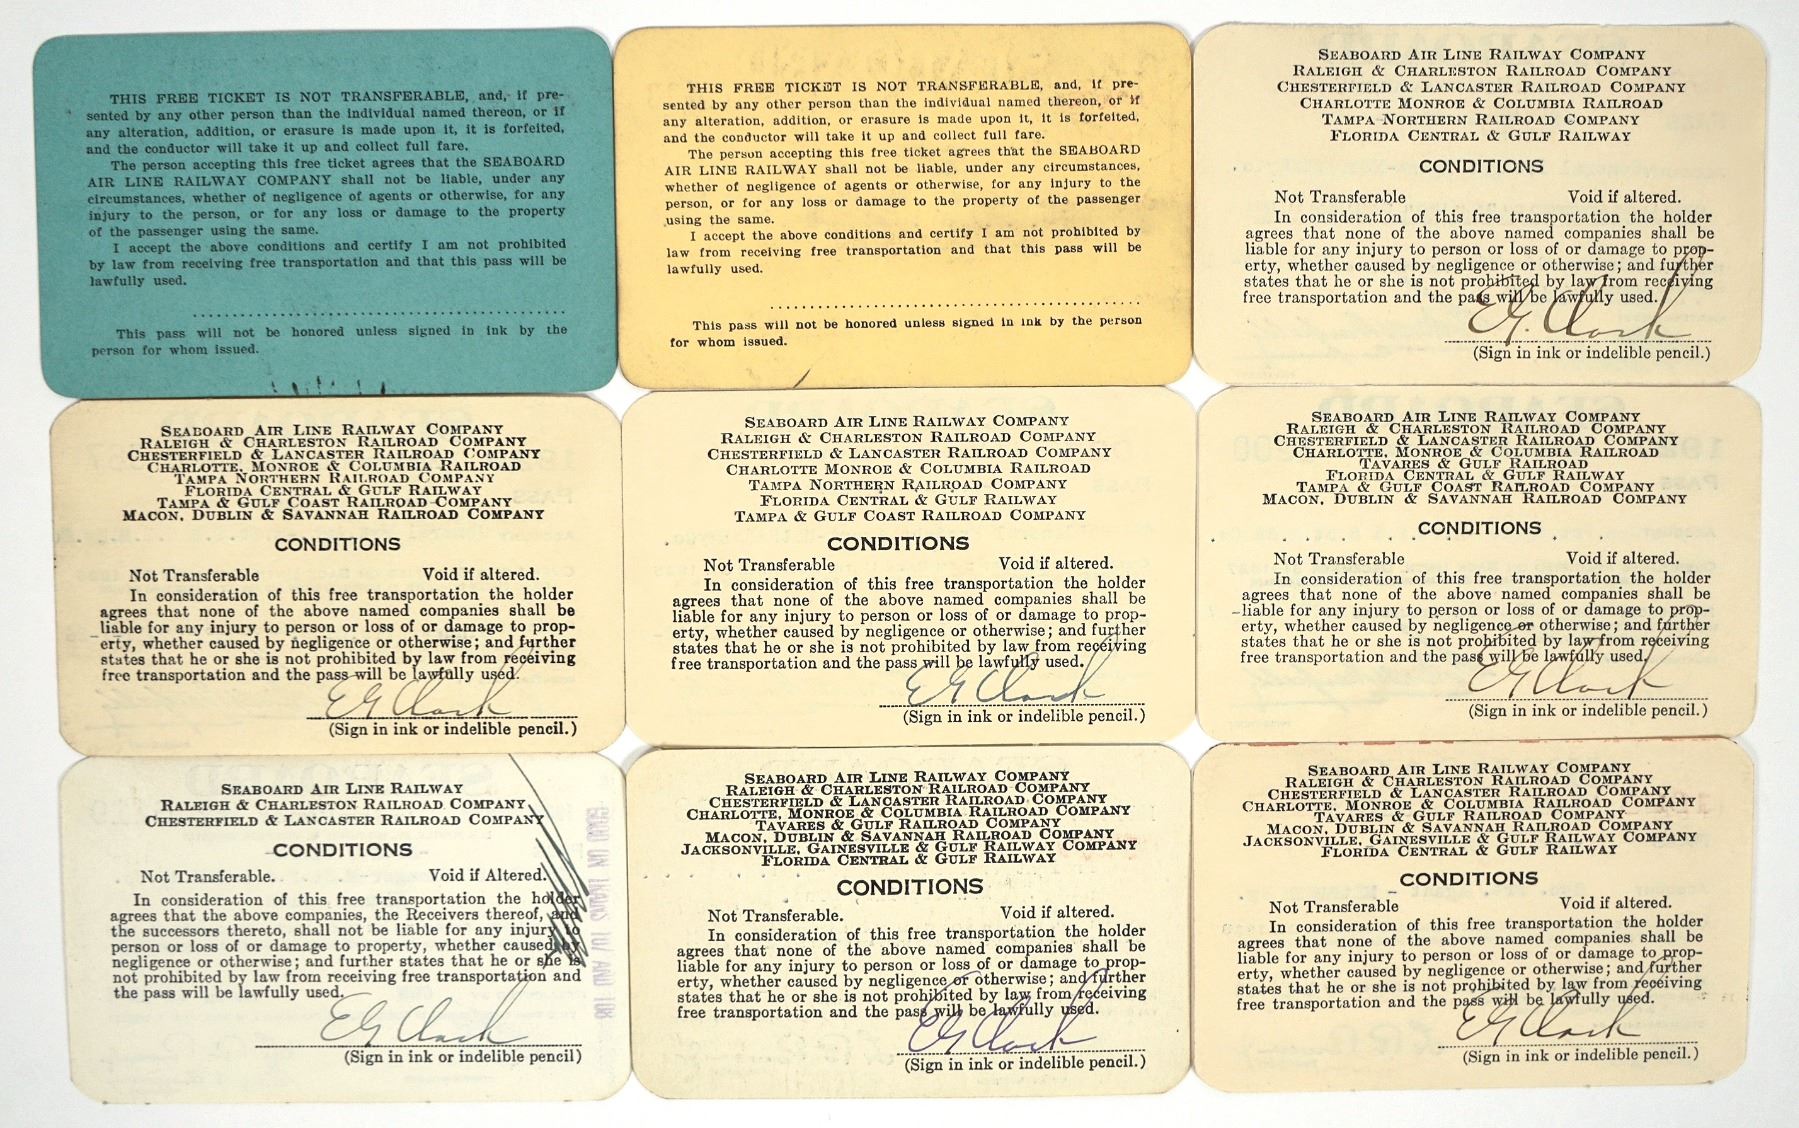 THIS FREE TICKET IS NOT TRANSFERABLE, and, if pre-
sented by any other person than the individual named thereon, or if
any alteration, addition, or erasure is made upon it, it is forfeited,
and the conductor will take it up and collect full fare.
The person accepting this free ticket agrees that the SEABOARD
AIR LINE RAILWAY COMPANY shall not be liable, under any
circumstances, whether of negligence of agents or otherwise, for any
injury to the person, or for any loss or damage to the property
of the passenger using the same.
I accept the above conditions and certify I am not prohibited
by law from receiving free transportation and that this pass will be
lawfully used.
This pass will not be honored unless signed in ink by the
person for whom issued.
THIS FREE TICKET IS NOT TRANSFERABLE, and, if pre-
sented by any other person than the individual named thereon, or if
any alteration, addition, or erasure is made upon it, it is forfeited,
and the conductor will take it up and collect full fare.
The person accepting this free ticket agrees that the SEABOARD
AIR LINE RAILWAY shall not be liable, under any circumstances,
whether of negligence of agents or otherwise, for any injury to the
person, or for any loss or damage to the property of the passenger
using the same.
I accept the above conditions and certify I am not prohibited by
law from receiving free transportation and that this pass will be
lawfully used.
This pass will not be honored unless signed in ink by the person
for whom issued.
SEABOARD AIR LINE RAILWAY COMPANY
RALEIGH & CHARLESTON RAILROAD COMPANY
CHESTERFIELD & LANCASTER RAILROAD COMPANY
CHARLOTTE MONROE & COLUMBIA RAILROAD
TAMPA NORTHERN RAILROAD COMPANY
FLORIDA CENTRAL & GULF RAILWAY
CONDITIONS
Not Transferable Void if altered.
In consideration of this free transportation the holder
agrees that none of the above named companies shall be
liable for any injury to person or loss of or damage to prop-
erty, whether caused by negligence or otherwise; and further
states that he or she is not prohibited by law from receiving
free transportation and the pass will be lawfully used.
E.G. Clark
(Sign in ink or indelible pencil.)
SEABOARD AIR LINE RAILWAY COMPANY
RALEIGH & CHARLESTON RAILROAD COMPANY
CHESTERFIELD & LANCASTER RAILROAD COMPANY
CHARLOTTE, MONROE & COLUMBIA RAILROAD
TAMPA NORTHERN RAILROAD COMPANY
FLORIDA CENTRAL & GULF RAILWAY
TAMPA & GULF COAST RAILROAD COMPANY
MACON, DUBLIN & SAVANNAH RAILROAD COMPANY
CONDITIONS
Not Transferable Void if altered.
In consideration of this free transportation the holder
agrees that none of the above named companies shall be
liable for any injury to person or loss of or damage to prop-
erty, whether caused by negligence or otherwise; and further
states that he or she is not prohibited by law from receiving
free transportation and the pass will be lawfully used.
E G Clark
(Sign in ink or indelible pencil.)
SEABOARD AIR LINE RAILWAY COMPANY
RALEIGH & CHARLESTON RAILROAD COMPANY
CHESTERFIELD & LANCASTER RAILROAD COMPANY
CHARLOTTE MONROE & COLUMBIA RAILROAD
TAMPA NORTHERN RAILROAD COMPANY
FLORIDA CENTRAL & GULF RAILWAY
TAMPA & GULF COAST RAILROAD COMPANY
CONDITIONS
Not Transferable Void if altered.
In consideration of this free transportation the holder
agrees that none of the above named companies shall be
liable for any injury to person or loss of or damage to prop-
erty, whether caused by negligence or otherwise; and further
states that he or she is not prohibited by law from receiving
free transportation and the pass will be lawfully used.
E G Clark
(Sign in ink or indelible pencil.)
SEABOARD AIR LINE RAILWAY COMPANY
RALEIGH & CHARLESTON RAILROAD COMPANY
CHESTERFIELD & LANCASTER RAILROAD COMPANY
CHARLOTTE, MONROE & COLUMBIA RAILROAD
TAVARES & GULF RAILROAD
FLORIDA CENTRAL & GULF RAILWAY
TAMPA & GULF COAST RAILROAD COMPANY
MACON, DUBLIN & SAVANNAH RAILROAD COMPANY
CONDITIONS
Not Transferable Void if altered.
In consideration of this free transportation the holder
agrees that none of the above named companies shall be
liable for any injury to person or loss of or damage to prop-
erty, whether caused by negligence or otherwise; and further
states that he or she is not prohibited by law from receiving
free transportation and the pass will be lawfully used.
E G Clark
(Sign in ink or indelible pencil.)
SEABOARD AIR LINE RAILWAY
RALEIGH & CHARLESTON RAILROAD COMPANY
CHESTERFIELD & LANCASTER RAILROAD COMPANY
CONDITIONS
Not Transferable. Void if Altered.
In consideration of this free transportation the holder
agrees that the above companies, the Receivers thereof, and
the successors thereto, shall not be liable for any injury to
person or loss of or damage to property, whether caused by
negligence or otherwise; and further states that he or she is
not prohibited by law from receiving free transportation and
the pass will be lawfully used.
E G Clark
(Sign in ink or indelible pencil)
GOOD ON TRAINS 107 AND 108
SEABOARD AIR LINE RAILWAY COMPANY
RALEIGH & CHARLESTON RAILROAD COMPANY
CHESTERFIELD & LANCASTER RAILROAD COMPANY
CHARLOTTE, MONROE & COLUMBIA RAILROAD COMPANY
TAVARES & GULF RAILROAD COMPANY
MACON, DUBLIN & SAVANNAH RAILROAD COMPANY
JACKSONVILLE, GAINESVILLE & GULF RAILWAY COMPANY
FLORIDA CENTRAL & GULF RAILWAY
CONDITIONS
Not Transferable. Void if altered.
In consideration of this free transportation the holder
agrees that none of the above named companies shall be
liable for any injury to person or loss of or damage to prop-
erty, whether caused by negligence or otherwise; and further
states that he or she is not prohibited by law from receiving
free transportation and the pass will be lawfully used.
E G Clark
(Sign in ink or indelible pencil.)
SEABOARD AIR LINE RAILWAY COMPANY
RALEIGH & CHARLESTON RAILROAD COMPANY
CHESTERFIELD & LANCASTER RAILROAD COMPANY
CHARLOTTE, MONROE & COLUMBIA RAILROAD COMPANY
TAVARES & GULF RAILROAD COMPANY
MACON, DUBLIN & SAVANNAH RAILROAD COMPANY
JACKSONVILLE, GAINESVILLE & GULF RAILWAY COMPANY
FLORIDA CENTRAL & GULF RAILWAY
CONDITIONS
Not Transferable Void if altered.
In consideration of this free transportation the holder
agrees that none of the above named companies shall be
liable for any injury to person or loss of or damage to prop-
erty, whether caused by negligence or otherwise; and further
states that he or she is not prohibited by law from receiving
free transportation and the pass will be lawfully used.
E G Clark
(Sign in ink or indelible pencil.)